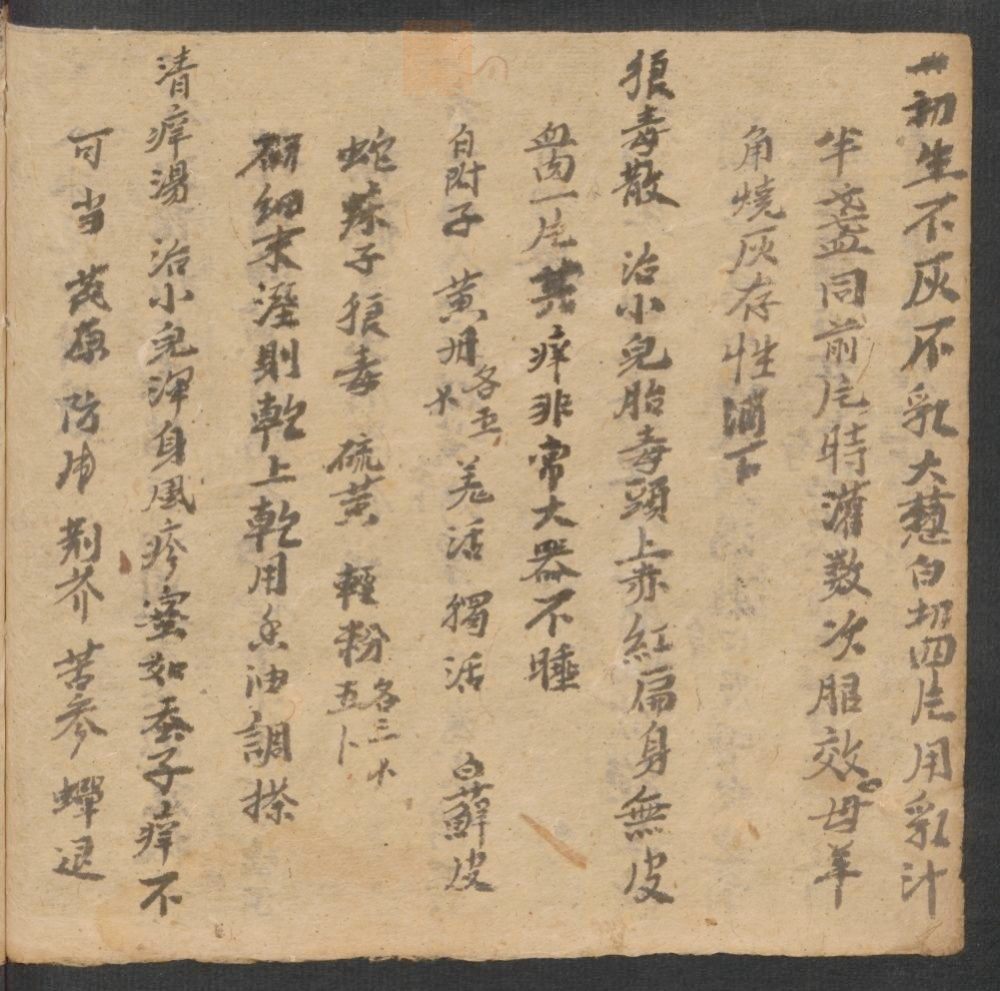 一初生不灰不乳大蔥白切四片用乳汁
半盞同煎片時灌数次服效母羊
角燒灰存性酒下
狼毒散 治小兒胎毒頭上赤紅扁身無皮
血凶一片其痒非常大器不睡
白附子 黄丹各五木 羌活 獨活 白蘚皮
蛇床子 狼毒 硫黄 輕粉各三木五卜
研細末溼則乾上乾用香油調搽
清痒湯 治小兒渾身風疹蜜如蚕子痒不
可当 芪 防 荆芥 苦参 蟬退